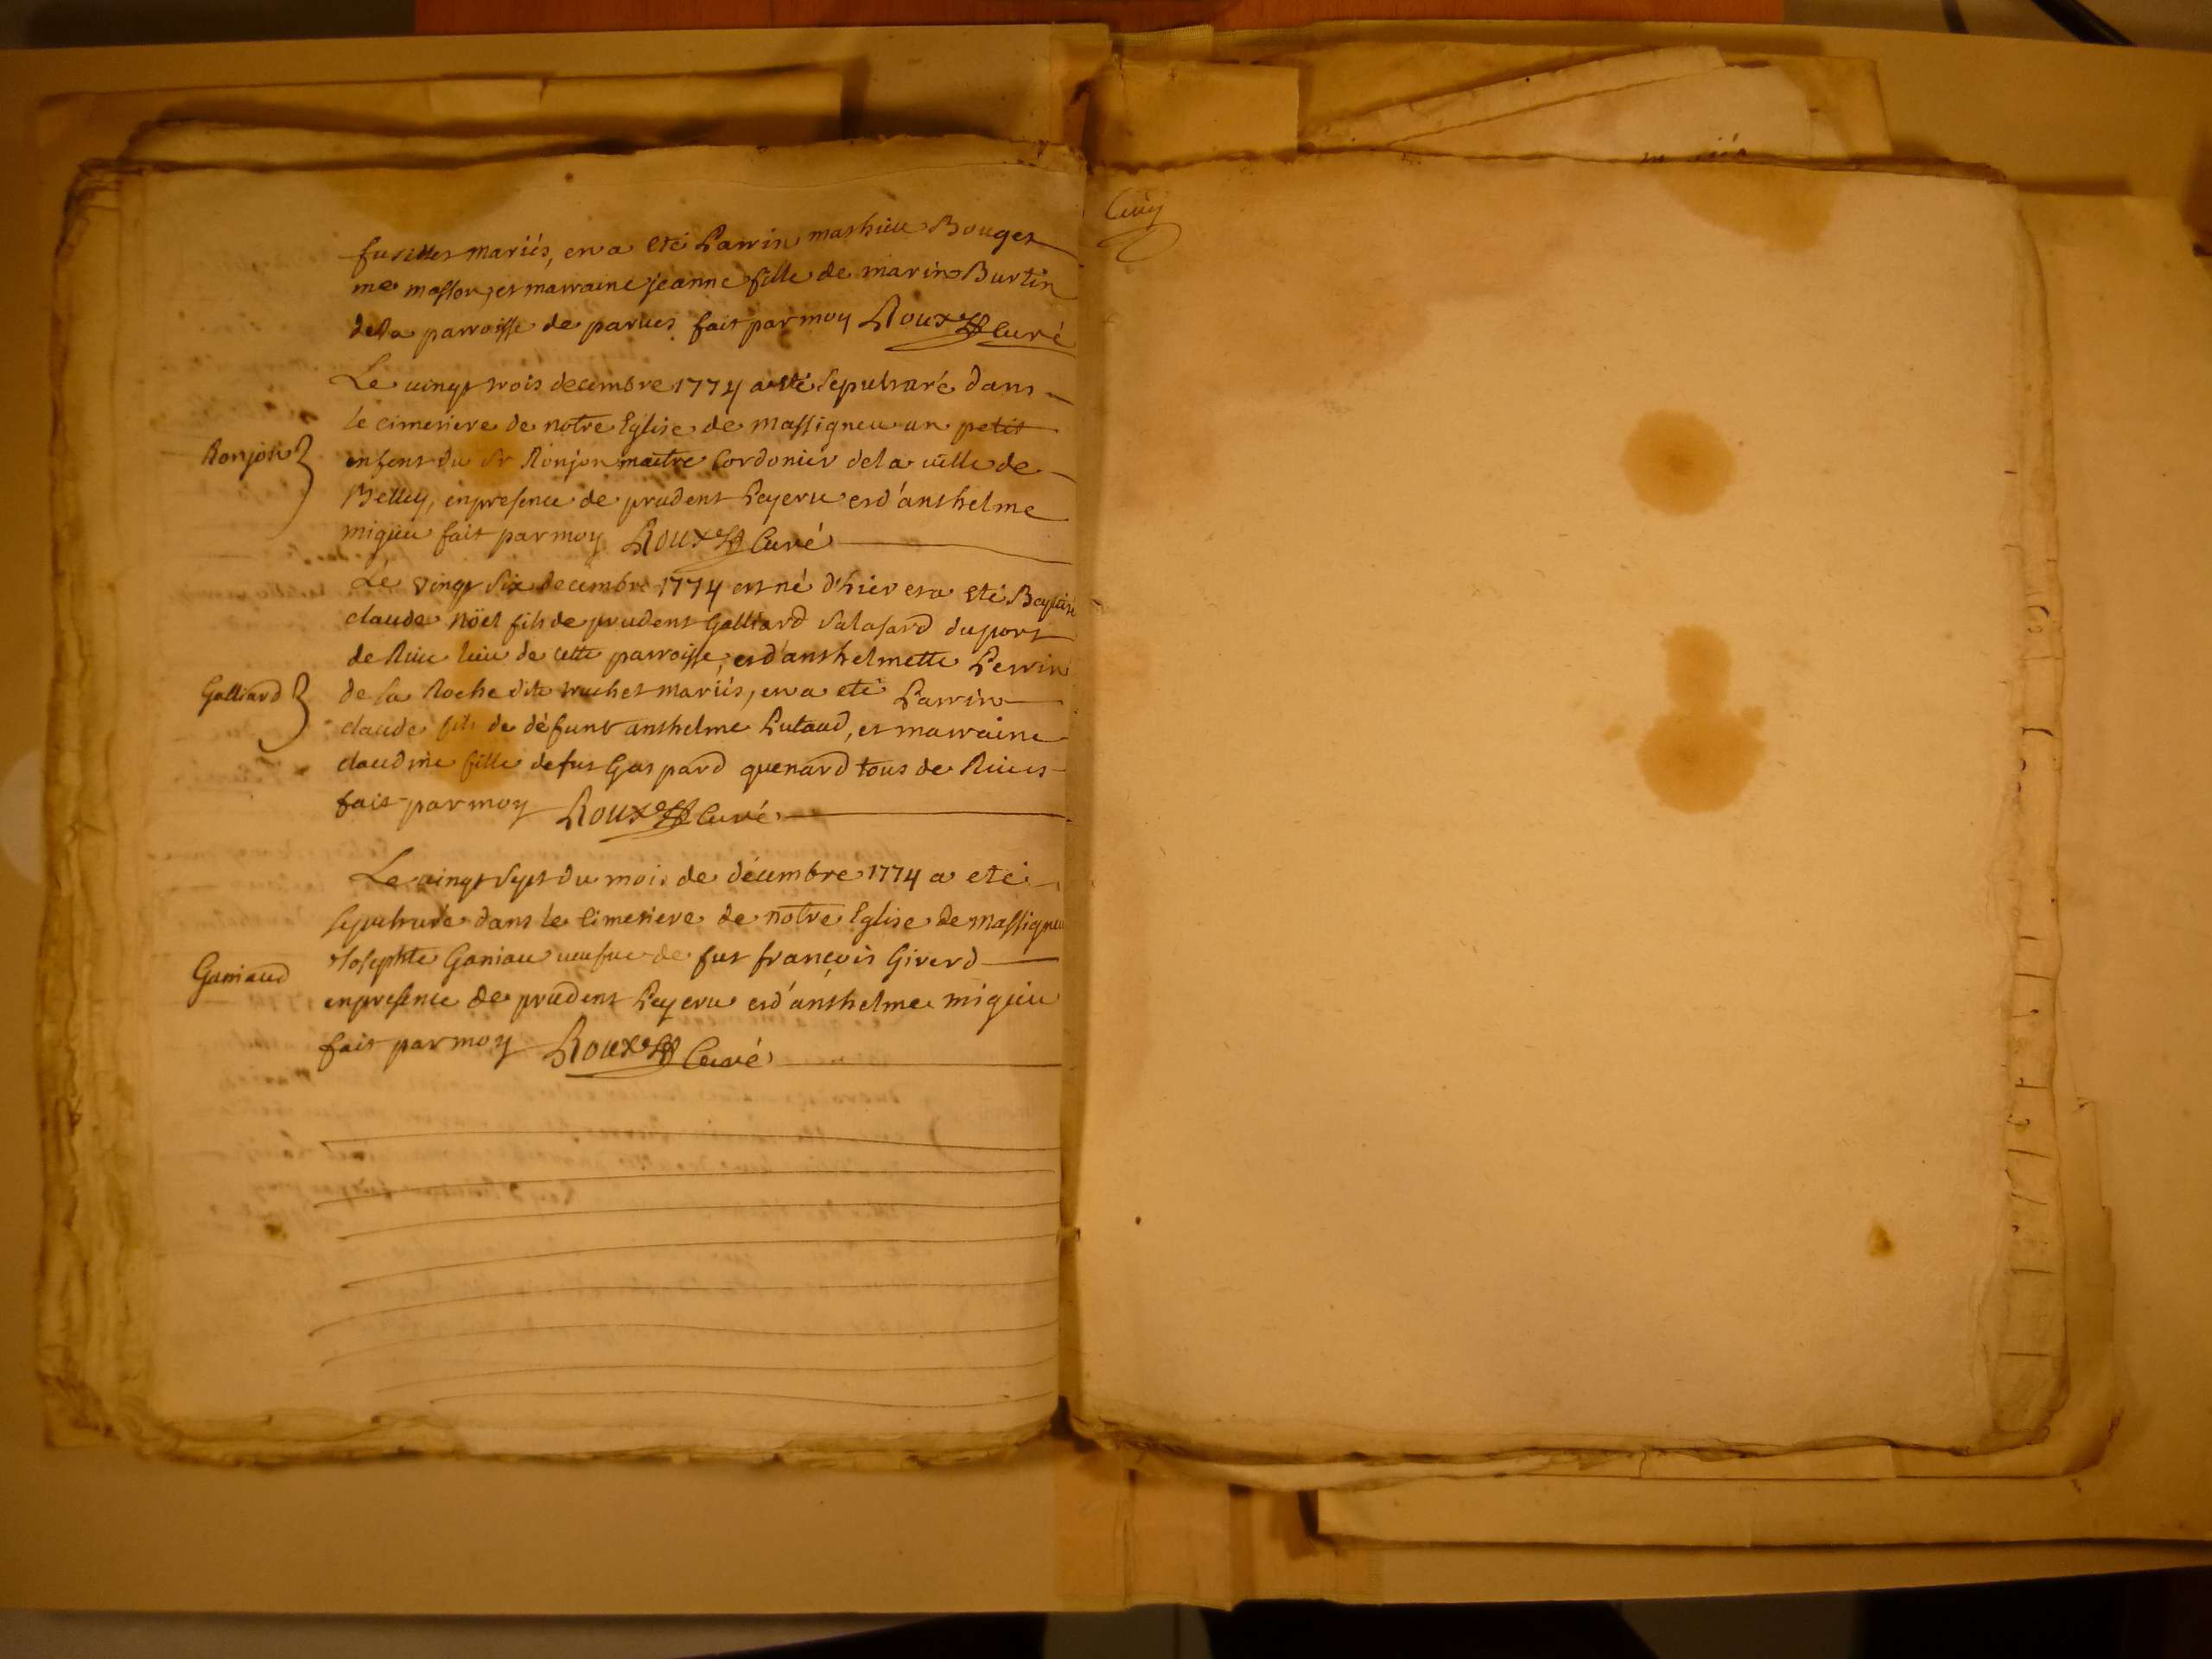 fusilles mariés, en a eté Parrin mathieu Bouget
me masson, et marraine jeanne fille de marin Burtin
de la parroisse de parues. fait par moy Roux Curé
Le vingt trois decembre 1774 a eté sepulturé dans
le cimetiere de notre Eglise de massigneu un petit
Ronjon
enfent du Sr Ronjon maitre Cordonier de la ville de
Belley, en presence de prudent Peyeru et d'anthelme
migieu fait par moy Roux Curé
Le vingt six decembre 1774 est né d'hier et a eté Baptisé
claude nöel fils de prudent Galliard Salasard du port
de Riue lieu de cette parroisse, et d'anthelmette Perrin
Galliard
de la Roche dite truchet mariés, en a eté Parrin
claude fils de défunt anthelme Putaud, et marraine
claudine fille de fut Gaspard quenard tous de Riues
fait par moy Roux Curé
Le vingt sept du mois de décembre 1774 a eté
sepulturée dans le Cimetiere de notre Eglise de massigneu
Ganiaud
Josephte Ganiau veufue de fut françois Giverd
en presence de prudent Peyeru et d'anthelme migieu
fait par moy Roux Curé